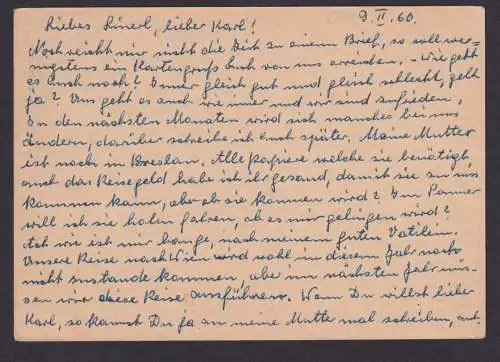 Liebes Linerl, lieber Karl! 9. II. 60.
Noch reicht mir nicht die Zeit zu einem Brief, so soll we-
nigstens ein Kartengruß Euch von uns erreichen. - Wie geht
es Euch noch? Immer gleich gut und gleich schlecht, gelt
ja? Uns geht es auch wie immer und wir sind zufrieden.
In den nächsten Monaten wird sich manches bei uns
ändern, darüber schreibe ich Euch später. Meine Mutter
ist noch in Breslau. Alle Papiere welche sie benötigt,
auch das Reisegeld habe ich ihr gesand, damit sie zu uns
kommen kann, aber ob sie kommen wird? Im Sommer
will ich sie holen fahren, ob es mir gelingen wird?
Ach wie ist mir bange, nach meinem guten Vatilein.
Unsere Reise nach Wien wird wohl in diesem Jahr noch
nicht zustande kommen, aber im nächsten Jahr müs-
sen wir diese Reise ausführen. Wenn Du willst lieber
Karl, so kannst Du ja an meine Mutter mal schreiben, ant-